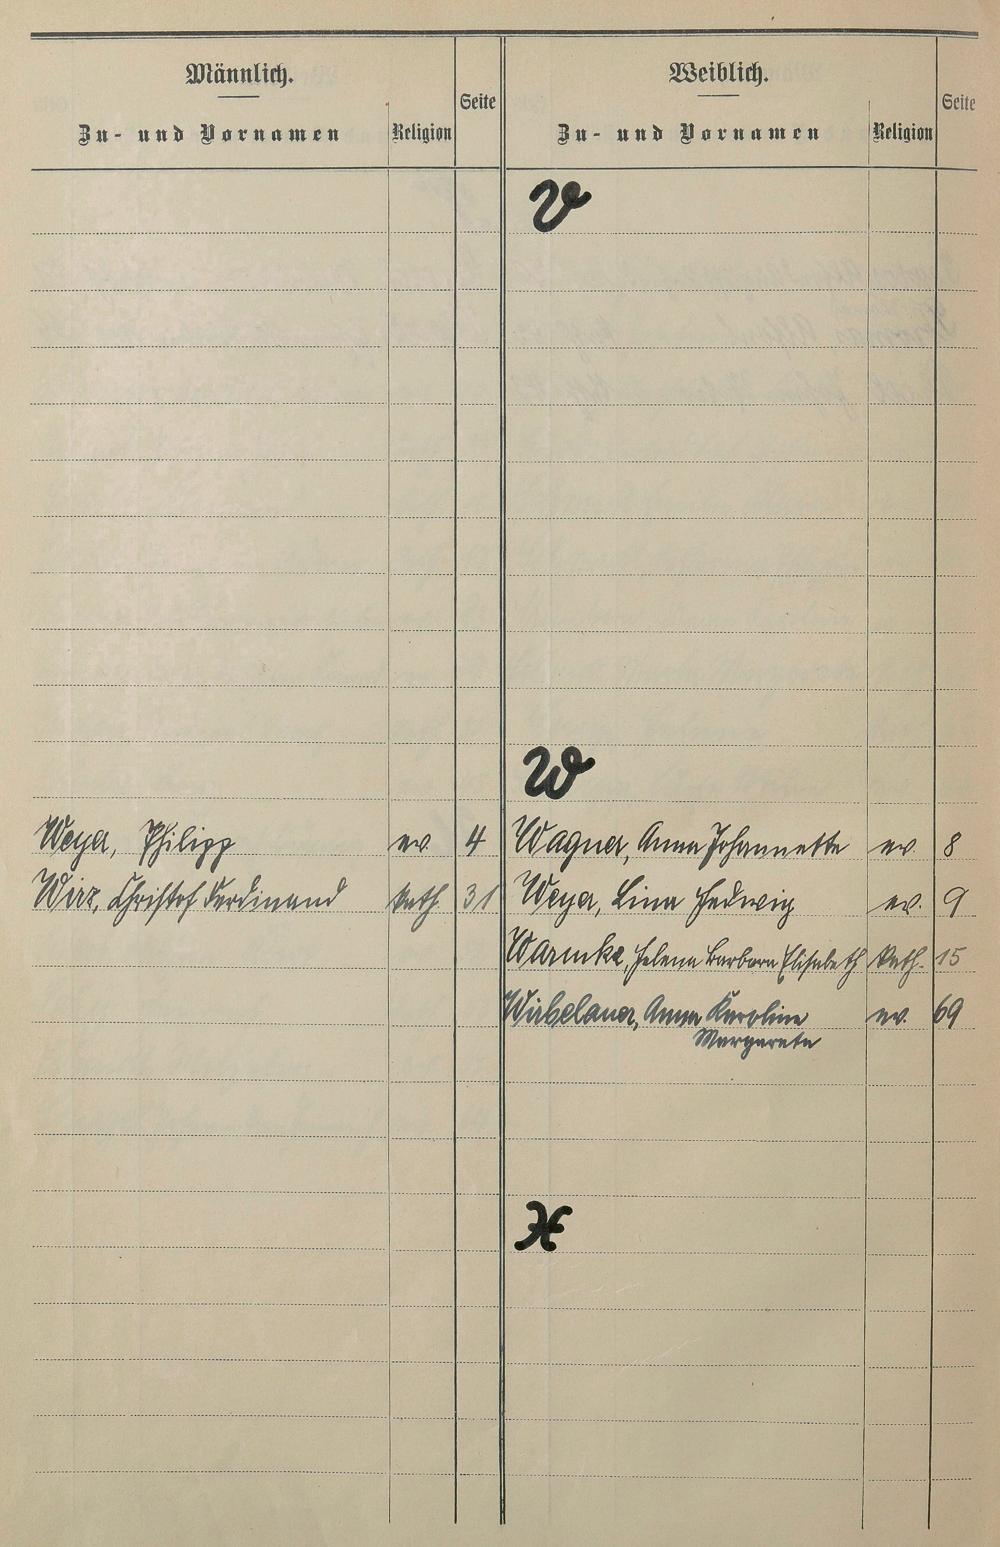 Männlich.
Zu- und Vornamen Religion Seite
Weiblich.
Zu- und Vornamen Religion Seite
V
W
Weyer, Philipp ev. 4
Wagner, Anna Johannette ev. 8
Wirz, Christof Ferdinand kath. 31
Weyer, Lina Hedwig ev. 9
Warmke, Helena Barbara Elisabeth kath. 15
Wirbelauer, Anna Karoline ev. 69
Margareta
X